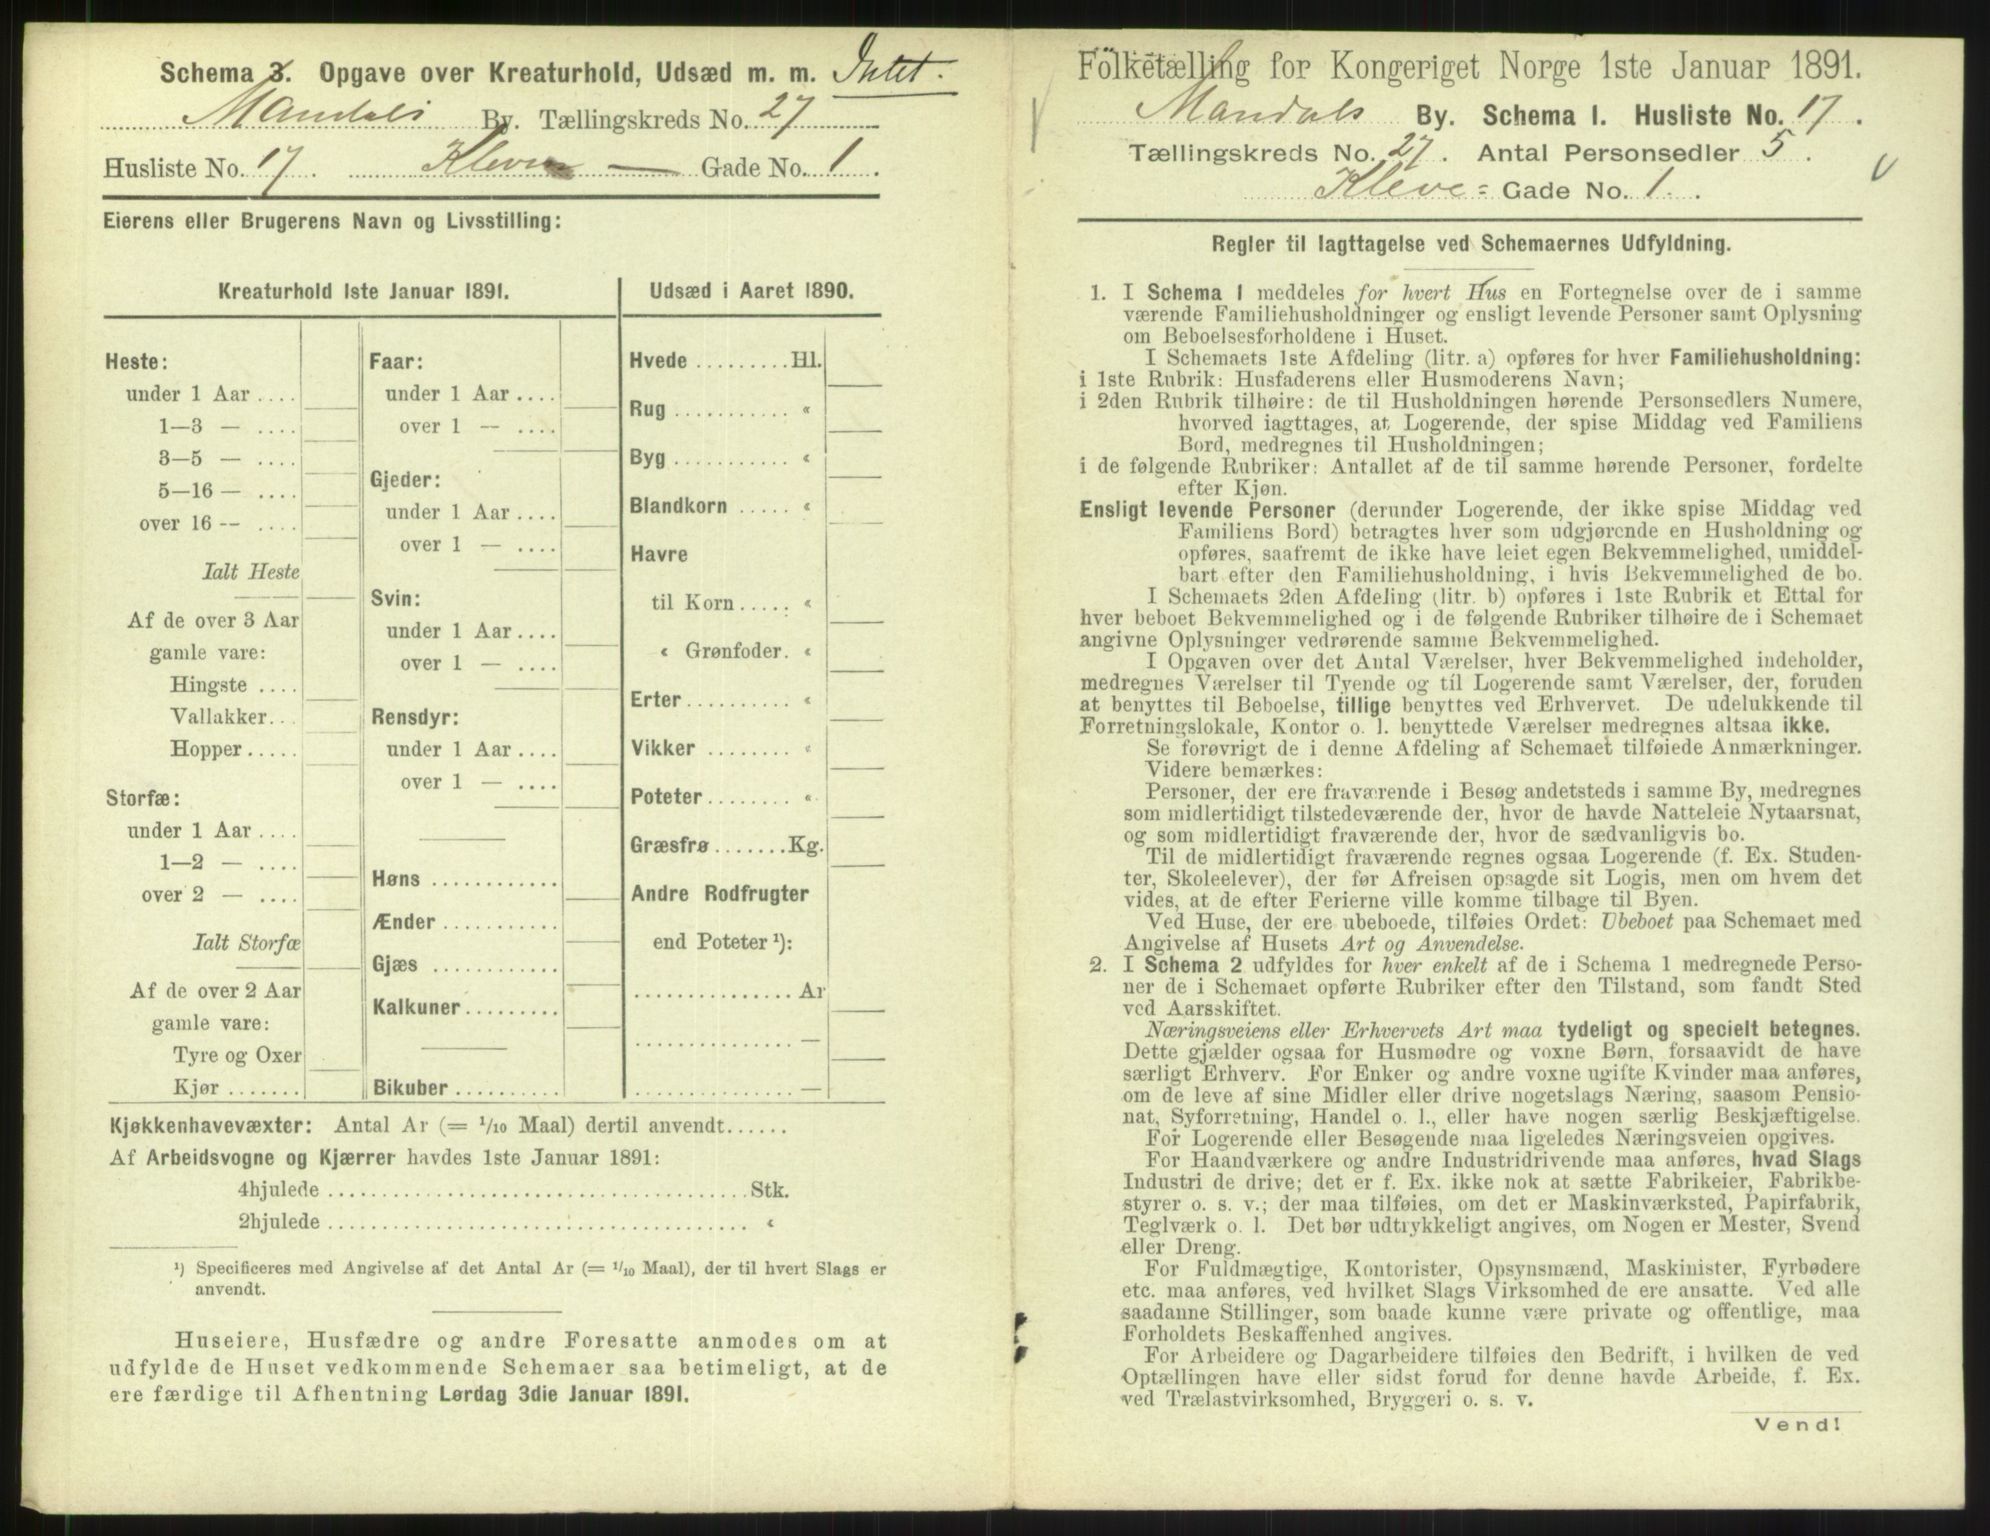 Schema 3. Opgave over Kreaturhold, Udsæd m. m. Intet.
Mandals By. Tællingskreds No. 27
Husliste No. 17. Kleven — Gade No. 1.
Eierens eller Brugerens Navn og Livsstilling:
Kreaturhold 1ste Januar 1891.
Heste:
under 1 Aar ....
1—3 — ....
3—5 — ....
5—16 — ....
over 16 — ....
Ialt Heste
Af de over 3 Aar
gamle vare:
Hingste ....
Vallakker...
Hopper .....
Storfæ:
under 1 Aar ....
1—2 — ....
over 2 — ....
Ialt Storfæ
Af de over 2 Aar
gamle vare:
Tyre og Oxer
Kjør .......
Faar:
under 1 Aar ....
over 1 — ....
Gjeder:
under 1 Aar ....
over 1 — ....
Svin:
under 1 Aar ....
over 1 — ....
Rensdyr:
under 1 Aar ....
over 1 — ....
Høns ............
Ænder ...........
Gjæs ............
Kalkuner.........
Bikuber ..........
Udsæd i Aaret 1890.
Hvede .........Hl.
Rug ........... «
Byg ........... «
Blandkorn ..... «
Havre
til Korn ..... «
« Grønfoder. «
Erter .......... «
Vikker ........ «
Poteter ........ «
Græsfrø .......Kg.
Andre Rodfrugter
end Poteter ¹):
............... Ar
............... —
............... —
Kjøkkenhavevæxter: Antal Ar (= 1/10 Maal) dertil anvendt......
Af Arbeidsvogne og Kjærrer havdes 1ste Januar 1891:
4hjulede ........................................ Stk.
2hjulede ........................................ «
¹) Specificeres med Angivelse af det Antal Ar (= 1/10 Maal), der til hvert Slags er
anvendt.
Huseiere, Husfædre og andre Foresatte anmodes om at
udfylde de Huset vedkommende Schemaer saa betimeligt, at de
ere færdige til Afhentning Lørdag 3die Januar 1891.
Folketælling for Kongeriget Norge 1ste Januar 1891.
Mandals By. Schema 1. Husliste No. 17.
Tællingskreds No. 27. Antal Personsedler 5.
Kleve= Gade No. 1.
Regler til Iagttagelse ved Schemaernes Udfyldning.
1. I Schema 1 meddeles for hvert Hus en Fortegnelse over de i samme
værende Familiehusholdninger og ensligt levende Personer samt Oplysning
om Beboelsesforholdene i Huset.
I Schemaets 1ste Afdeling (litr. a) opføres for hver Familiehusholdning:
i 1ste Rubrik: Husfaderens eller Husmoderens Navn;
i 2den Rubrik tilhøire: de til Husholdningen hørende Personsedlers Numere,
hvorved iagttages, at Logerende, der spise Middag ved Familiens
Bord, medregnes til Husholdningen;
i de følgende Rubriker: Antallet af de til samme hørende Personer, fordelte
efter Kjøn.
Ensligt levende Personer (derunder Logerende, der ikke spise Middag ved
Familiens Bord) betragtes hver som udgjørende en Husholdning og
opføres, saafremt de ikke have leiet egen Bekvemmelighed, umiddel-
bart efter den Familiehusholdning, i hvis Bekvemmelighed de bo.
I Schemaets 2den Afdeling (litr. b) opføres i 1ste Rubrik et Ettal for
hver beboet Bekvemmelighed og i de følgende Rubriker tilhøire de i Schemaet
angivne Oplysninger vedrørende samme Bekvemmelighed.
I Opgaven over det Antal Værelser, hver Bekvemmelighed indeholder,
medregnes Værelser til Tyende og til Logerende samt Værelser, der, foruden
at benyttes til Beboelse, tillige benyttes ved Erhvervet. De udelukkende til
Forretningslokale, Kontor o. l. benyttede Værelser medregnes altsaa ikke.
Se forøvrigt de i denne Afdeling af Schemaet tilføiede Anmærkninger.
Videre bemærkes:
Personer, der ere fraværende i Besøg andetsteds i samme By, medregnes
som midlertidigt tilstedeværende der, hvor de havde Natteleie Nytaarsnat,
og som midlertidigt fraværende der, hvor de sædvanligvis bo.
Til de midlertidigt fraværende regnes ogsaa Logerende (f. Ex. Studen-
ter, Skoleelever), der før Afreisen opsagde sit Logis, men om hvem det
vides, at de efter Ferierne ville komme tilbage til Byen.
Ved Huse, der ere ubeboede, tilføies Ordet: Ubeboet paa Schemaet med
Angivelse af Husets Art og Anvendelse.
2. I Schema 2 udfyldes for hver enkelt af de i Schema 1 medregnede Perso-
ner de i Schemaet opførte Rubriker efter den Tilstand, som fandt Sted
ved Aarsskiftet.
Næringsveiens eller Erhvervets Art maa tydeligt og specielt betegnes.
Dette gjælder ogsaa for Husmødre og voxne Børn, forsaavidt de have
særligt Erhverv. For Enker og andre voxne ugifte Kvinder maa anføres,
om de leve af sine Midler eller drive nogetslags Næring, saasom Pensio-
nat, Syforretning, Handel o. l., eller have nogen særlig Beskjæftigelse.
For Logerende eller Besøgende maa ligeledes Næringsveien opgives.
For Haandværkere og andre Industridrivende maa anføres, hvad Slags
Industri de drive; det er f. Ex. ikke nok at sætte Fabrikeier, Fabrikbe-
styrer o. s. v.; der maa tilføies, om det er Maskinværksted, Papirfabrik,
Teglværk o. l. Det bør udtrykkeligt angives, om Nogen er Mester, Svend
eller Dreng.
For Fuldmægtige, Kontorister, Opsynsmænd, Maskinister, Fyrbødere
etc. maa anføres, ved hvilket Slags Virksomhed de ere ansatte. Ved alle
saadanne Stillinger, som baade kunne være private og offentlige, maa
Forholdets Beskaffenhed angives.
For Arbeidere og Dagarbeidere tilføies den Bedrift, i hvilken de ved
Optællingen have eller sidst forud for denne havde Arbeide, f. Ex.
ved Trælastvirksomhed, Bryggeri o. s. v.
Vend!